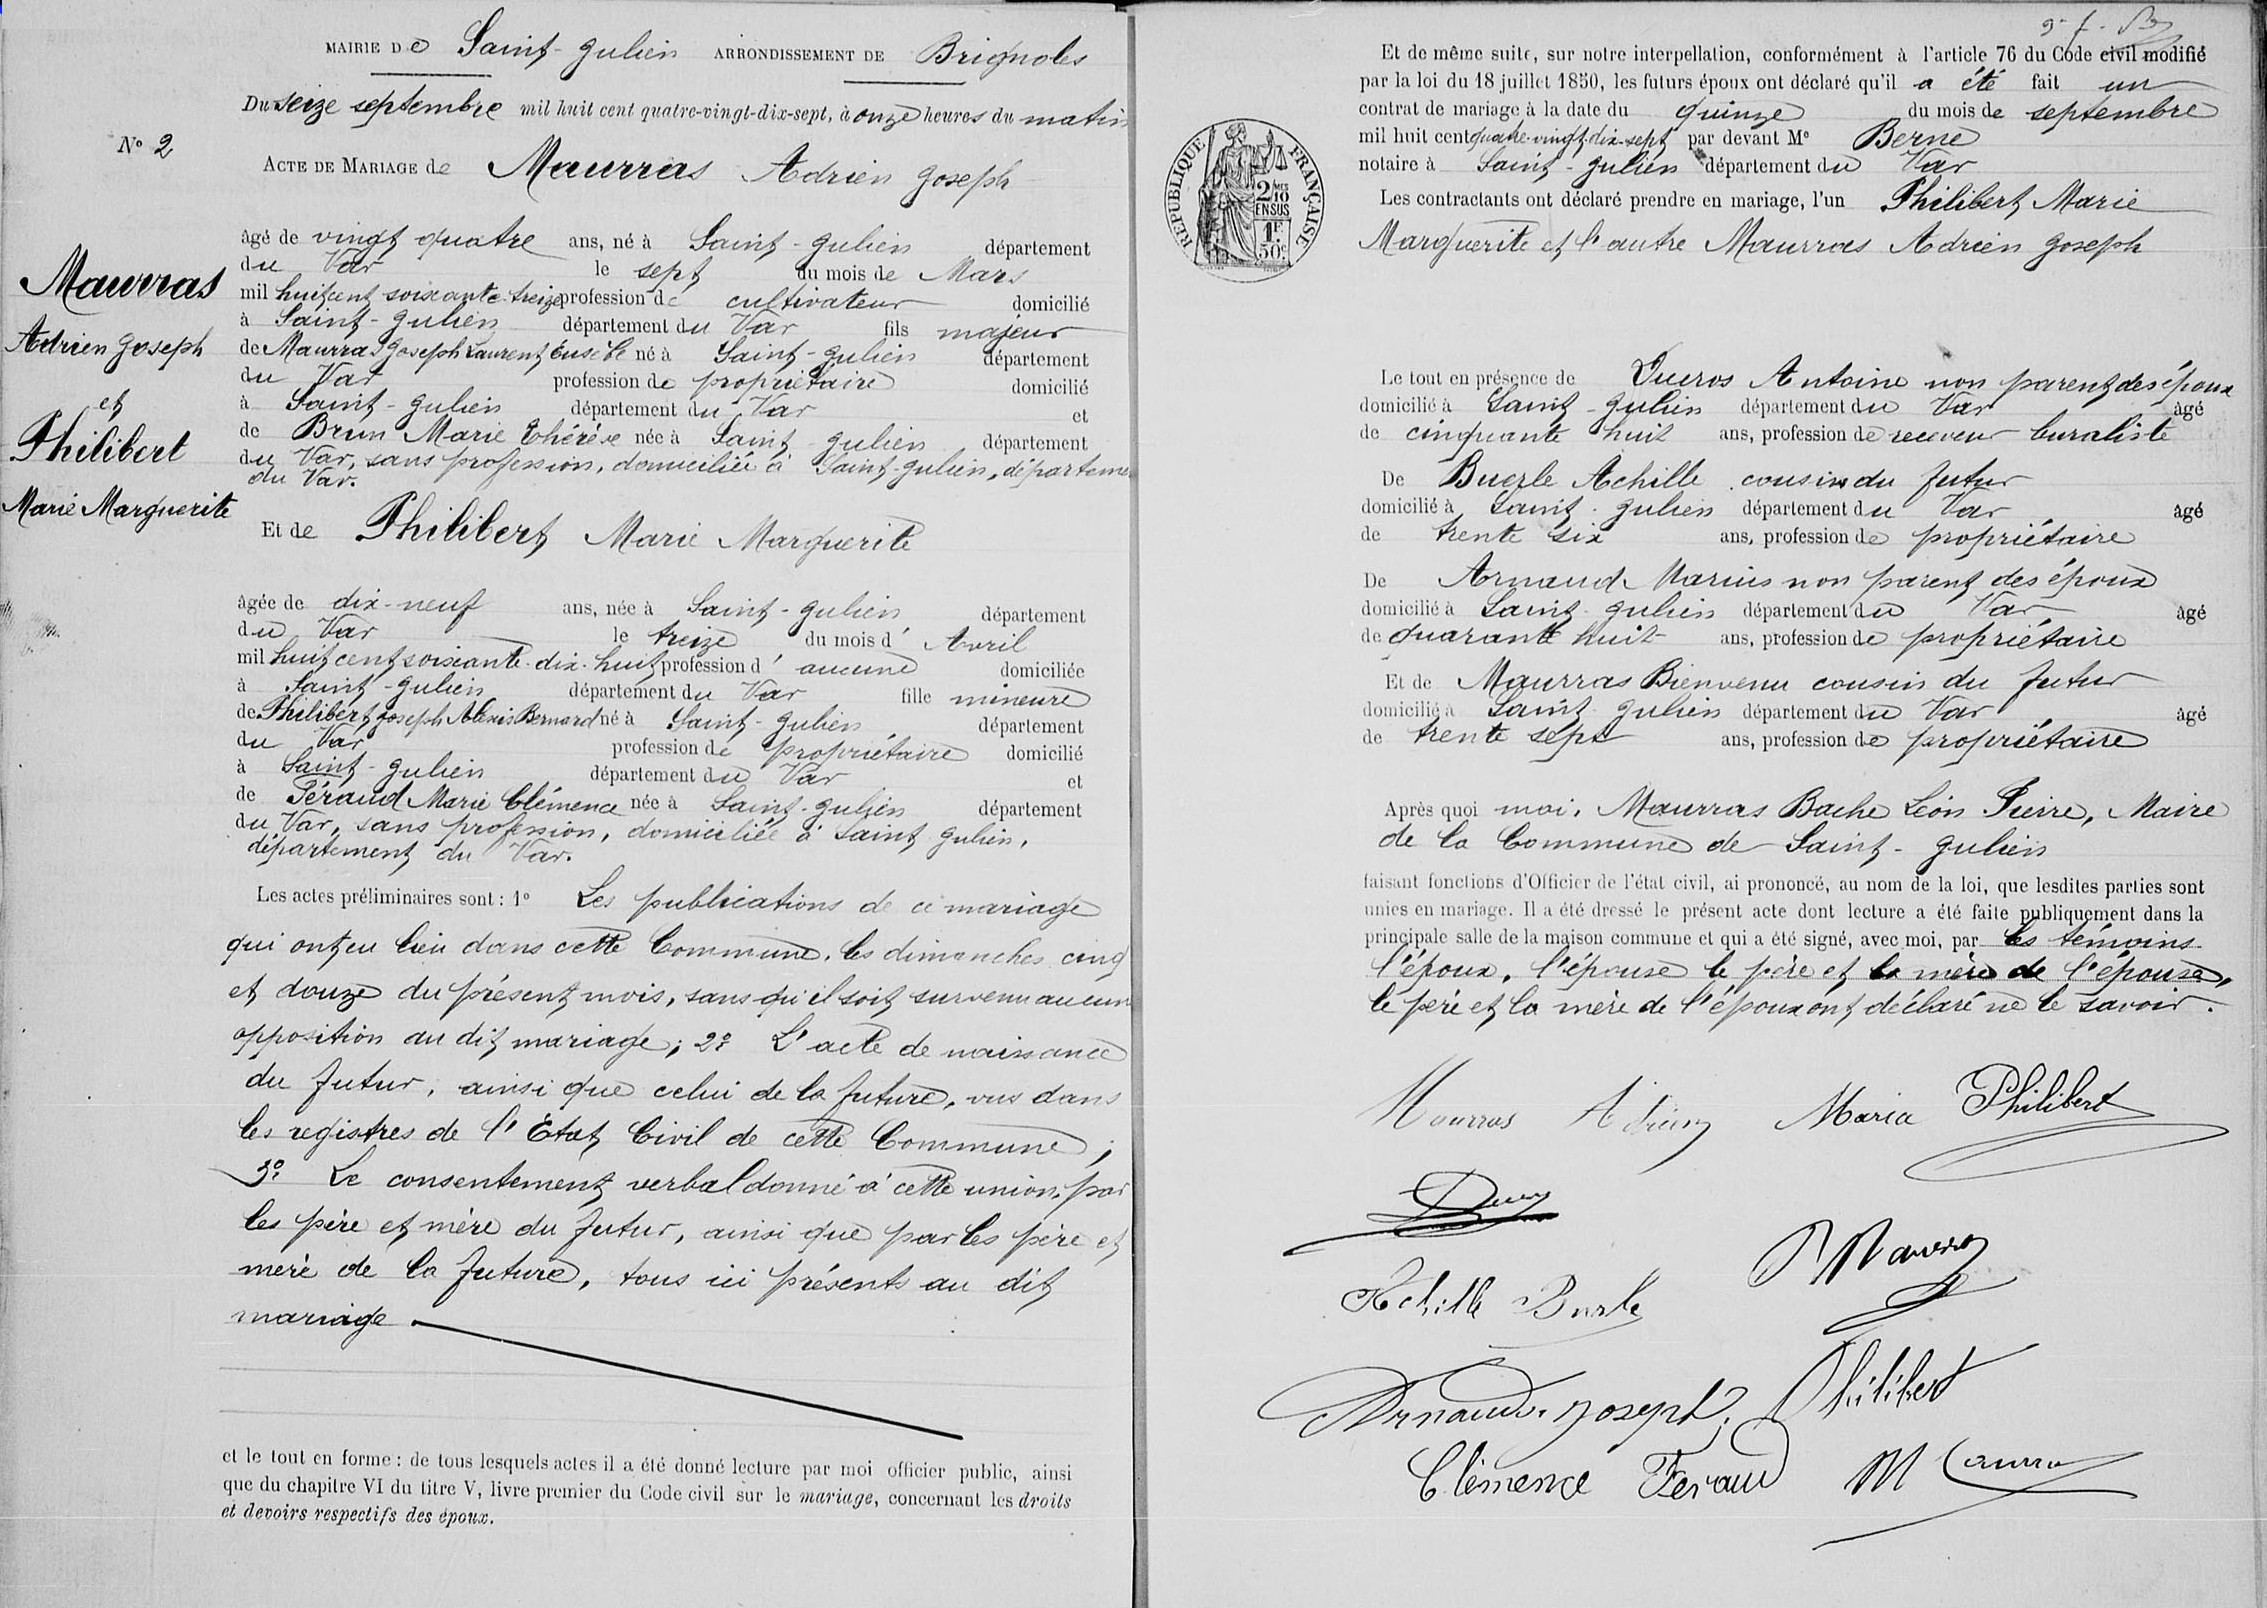 MAIRIE De Saint-Julien ARRONDISSEMENT DE Brignoles
Du seize septembre mil huit cent quatre-vingt-dix-sept, à onze heures du matin
No 2
ACTE DE MARIAGE de Maurras Adrien Joseph
Maurras
Adrien Joseph
et
Philibert
Marie Marguerite
âgé de vingt quatre ans, né à Saint-Julien département
du Var le sept du mois de Mars
mil huit cent soixante-treize profession de cultivateur domicilié
à Saint-Julien département du Var fils majeur
de Maurras Joseph Laurent Eusèbe né à Saint-Julien département
du Var profession de propriétaire domicilié
à Saint-Julien département du Var et
de Brun Marie Thérèse née à Saint-Julien département
du Var, sans profession, domiciliée à Saint-Julien, départeme
du Var.
Et de Philibert Marie Marguerite
âgée de dix-neuf ans, née à Saint-Julien département
du Var le treize du mois d' Avril
mil huit cent soixante-dix-huit profession d' aucune domiciliée
à Saint-Julien département du Var fille mineure
de Philibert Joseph Alexis Bernard né à Saint-Julien département
du Var profession de propriétaire domicilié
à Saint-Julien département du Var et
de Féraud Marie Clémence née à Saint-Julien département
du Var, sans profession, domiciliée à Saint Julien,
département du Var.
Les actes préliminaires sont : 1o Les publications de ce mariage
qui ont eu lieu dans cette Commune, les dimanches cinq
et douze du présent mois, sans qu'il soit survenu aucune
opposition au dit mariage; 2o L'acte de naissance
du futur, ainsi que celui de la future, vus dans
les registres de l'État Civil de cette Commune;
3o Le consentement verbal donné à cette union, par
les père et mère du futur, ainsi que par les père et
mère de la future, tous ici présents au dit
mariage.
et le tout en forme : de tous lesquels actes il a été donné lecture par moi officier public, ainsi
que du chapitre VI du titre V, livre premier du Code civil sur le mariage, concernant les droits
et devoirs respectifs des époux.
Et de même suite, sur notre interpellation, conformément à l'article 76 du Code civil modifié
par la loi du 18 juillet 1850, les futurs époux ont déclaré qu'il a été fait un
contrat de mariage à la date du quinze du mois de septembre
mil huit cent quatre-vingt-dix-sept par devant Me Berne
notaire à Saint-Julien département du Var
RÉPUBLIQUE FRANÇAISE
2/10
EN SUS
1F
50c
Les contractants ont déclaré prendre en mariage, l'un Philibert Marie
Marguerite et l'autre Maurras Adrien Joseph
Le tout en présence de Dueros Antoine non parent des époux
domicilié à Saint-Julien département du Var âgé
de cinquante huit ans, profession de receveur buraliste
De Buerle Achille cousin du futur
domicilié à Saint-Julien département du Var âgé
de trente six ans, profession de propriétaire
De Arnaud Marius non parent des époux
domicilié à Saint-Julien département du Var âgé
de quarante huit ans, profession de propriétaire
Et de Maurras Bienvenu cousin du futur
domicilié à Saint Julien département du Var âgé
de trente sept ans, profession de propriétaire
Après quoi moi, Maurras Bache Léon Pierre, Maire
de la Commune de Saint-Julien
faisant fonctions d'Officier de l'état civil, ai prononcé, au nom de la loi, que lesdites parties sont
unies en mariage. Il a été dressé le présent acte dont lecture a été faite publiquement dans la
principale salle de la maison commune et qui a été signé, avec moi, par les témoins
l'époux, l'épouse le père et la mère de l'épouse,
le père et la mère de l'époux ont déclaré ne le savoir.
Maurras Adrien Maria Philibert
Achille Burle
Arnaud. Joseph Philibert
Clémence Feraud Maurras